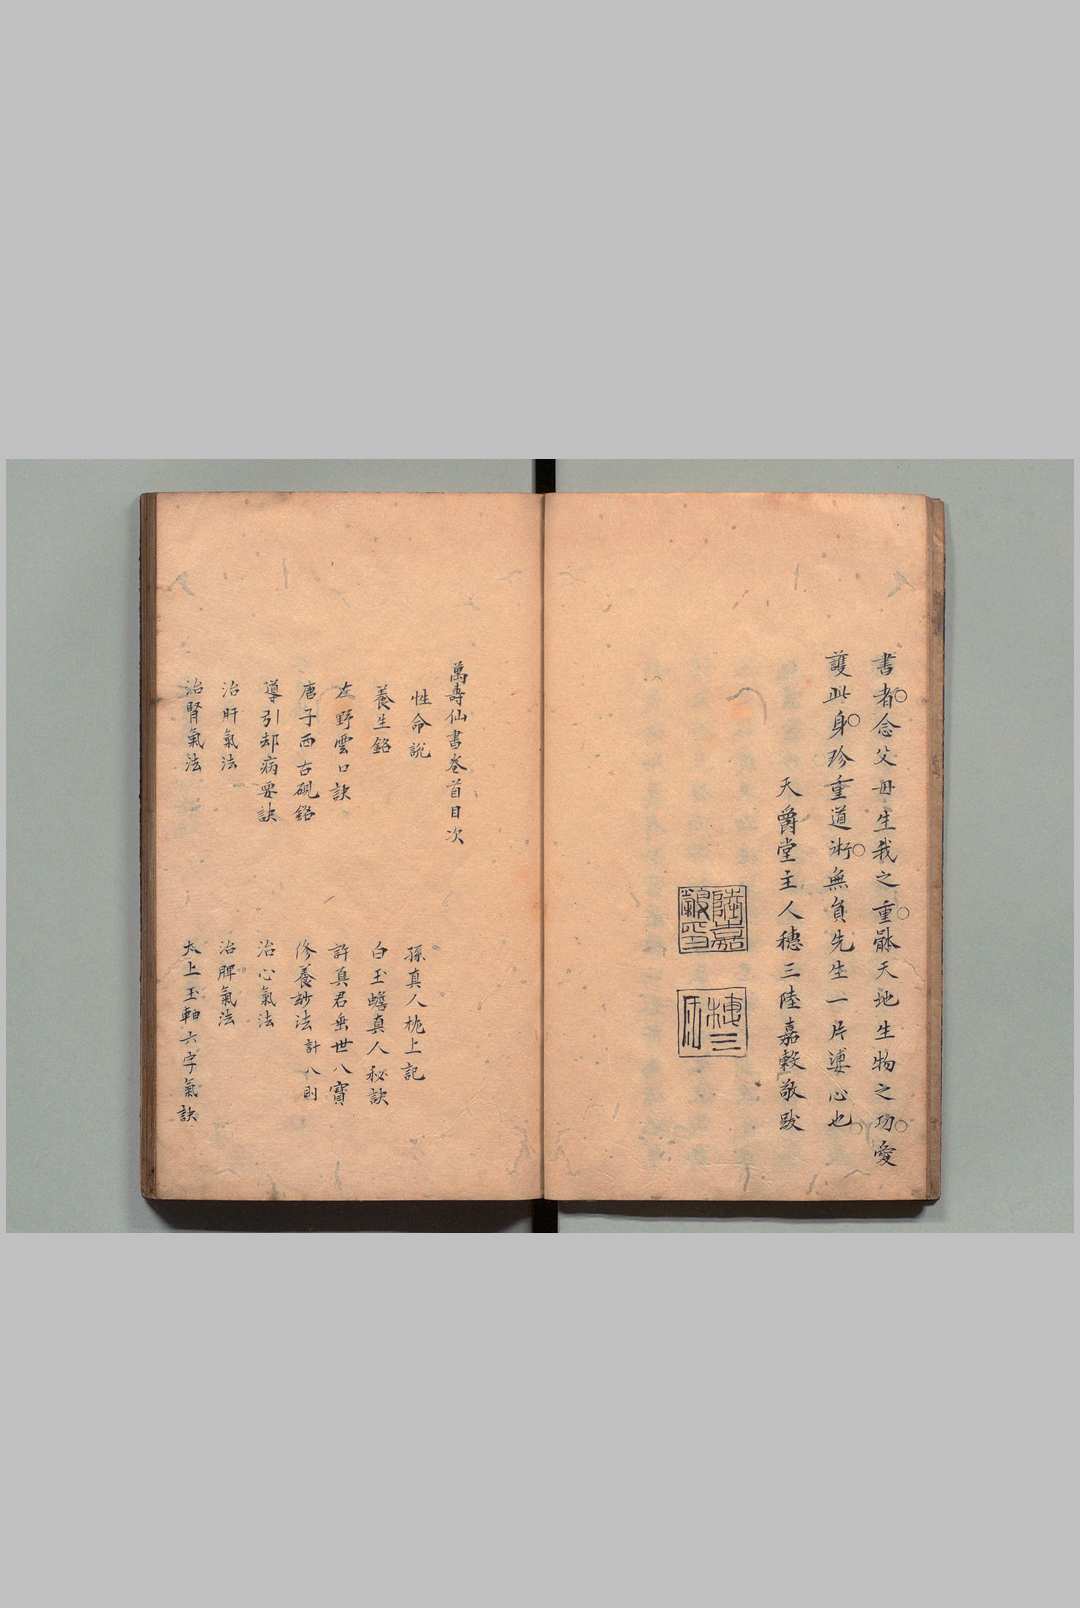 書者念父母生我之重體天地生物之功愛
護此身珍重道術無負先生一片婆心也
天爵堂主人穗三陸嘉穀敬跋
陸嘉穀印
穗三
萬壽仙書卷首目次
性命說
孫真人枕上記
養生銘
白玉蟾真人秘訣
左野雲口訣
許真君垂世八寶
唐子西古硯銘
修養玅法計八則
導引却病要訣
治心氣法
治肝氣法
治脾氣法
治腎氣法
太上玉軸六字氣訣